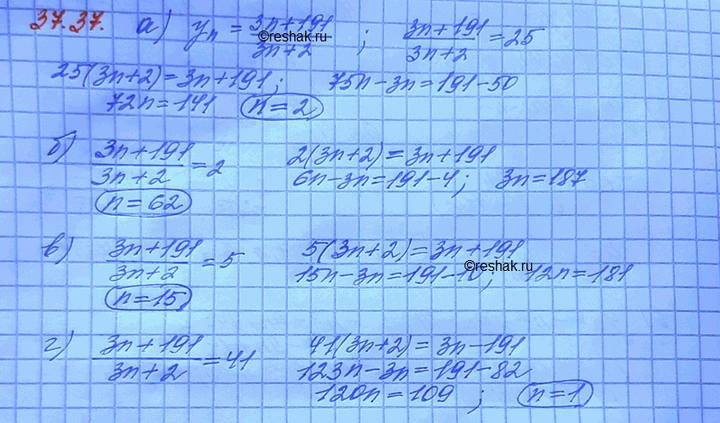 37.37. а) yₙ = (3n+191)/(3n+2) ; (3n+191)/(3n+2) = 25
25(3n+2)=3n+191; 75n-3n=191-50
72n=141 n=2
б) (3n+191)/(3n+2) = 2 2(3n+2)=3n+191
6n-3n=191-4; 3n=187
n=62
в) (3n+191)/(3n+2) = 5 5(3n+2)=3n+191
15n-3n=191-10; 12n=181
n=15
г) (3n+191)/(3n+2) = 41 41(3n+2)=3n-191
123n-3n=191-82
120n=109 ; n=1
©reshak.ru
©reshak.ru